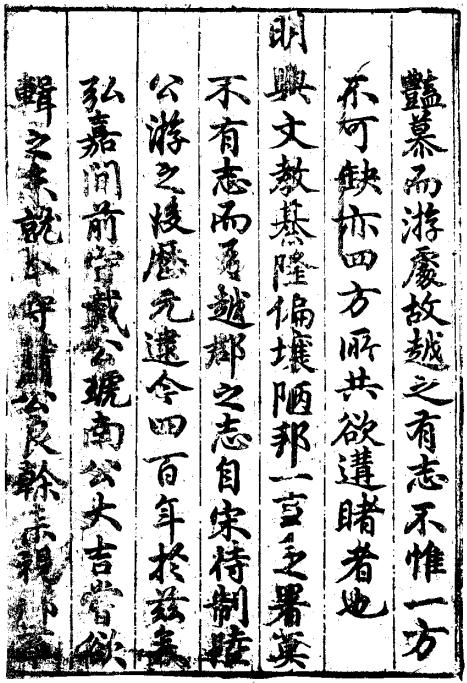 豔慕而游處故越之有志不惟一方
不可缺亦四方所共欲遘睹者也
明興文教綦隆偏壤陋邦一亭之署莫
不有志而吾越郡之志自宋待制陸
公游之後歷元逮今四百年於茲矣
弘嘉間前守戴公琥南公大吉嘗欲
輯之未就今守蕭公良榦